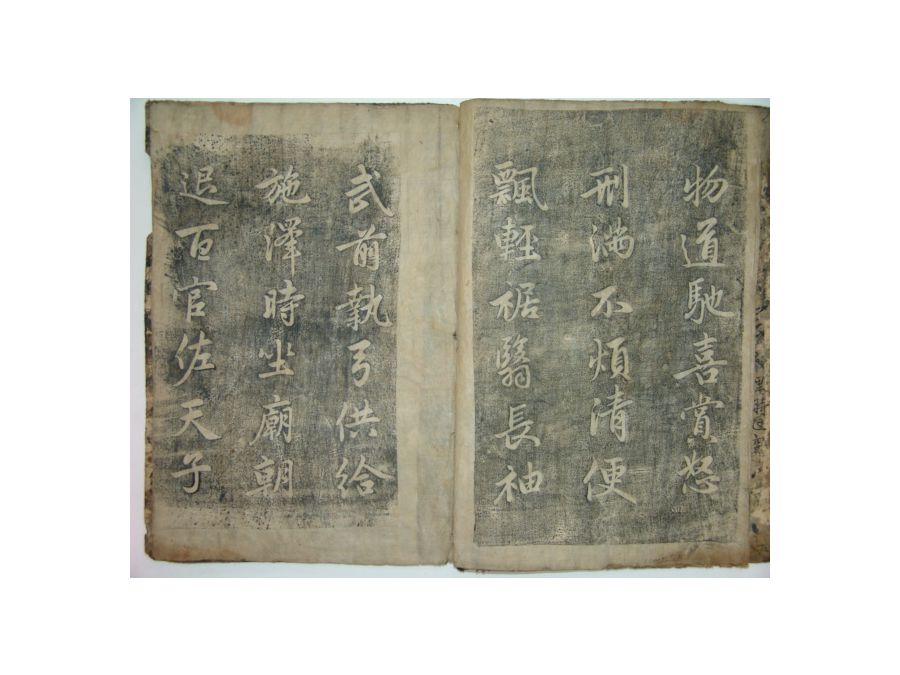 物道馳喜賞怒
刑滿不煩清便
飄輕裾翳長袖
武前執弓供給
施澤時坐廟朝
退百官佐天子